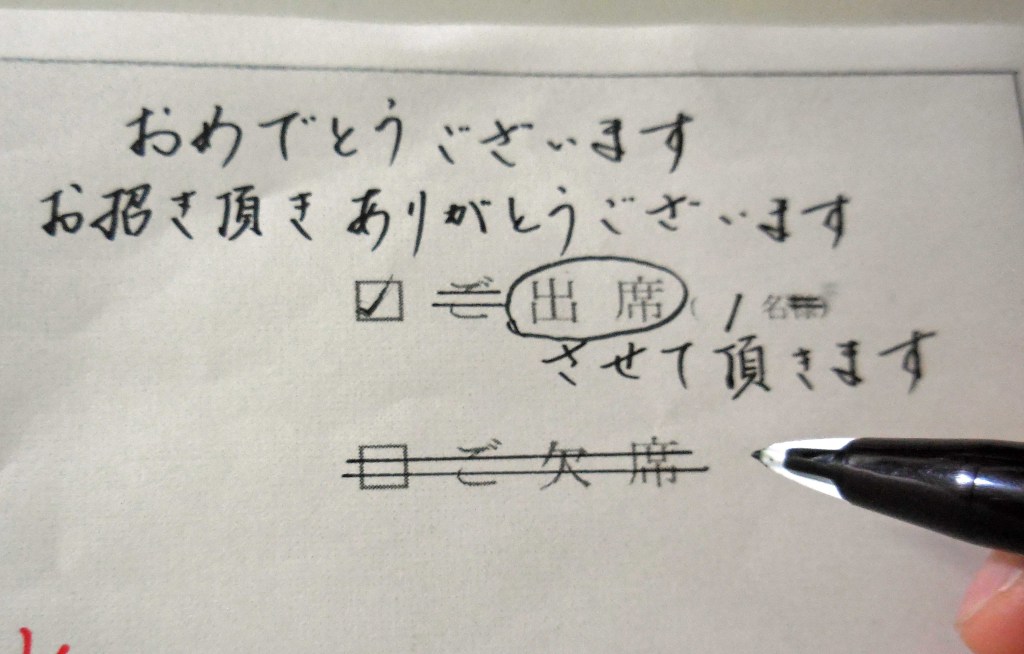 おめでとうございます
お招き頂きありがとうございます
☑ ご出席(1名様)
させて頂きます
☐ ご欠席